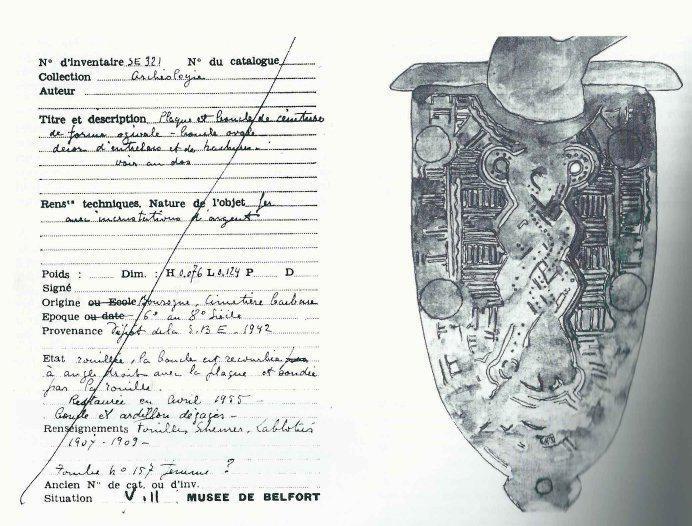 N° d'inventaire SE 321 N° du catalogue
Collection Archéologie
Auteur
Titre et description Plaque et boucle de ceinture
de forme ogivale - boucle ovale
décor d'entrelacs et de hachures.
voir au dos
Rens.ts techniques, Nature de l'objet fer
avec incrustations d'argent
Poids : Dim. : H 0,076 L 0,124 P D
Signé
Origine ou Ecole Bourogne, Cimetière barbare
Epoque ou date 6° au 8° Siècle
Provenance Dépôt de la S.B.E - 1942
Etat rouillée, la boucle est recourbée
à angle droit avec la plaque et soudée
par la rouille.
Restaurée en avril 1955 -
boucle et ardillon dégagés -
Renseignements Fouilles Scheurer, Lablotier
1907 - 1909 -
Tombe n° 157 femme ?
Ancien N° de cat. ou d'inv.
Situation V.11 MUSEE DE BELFORT